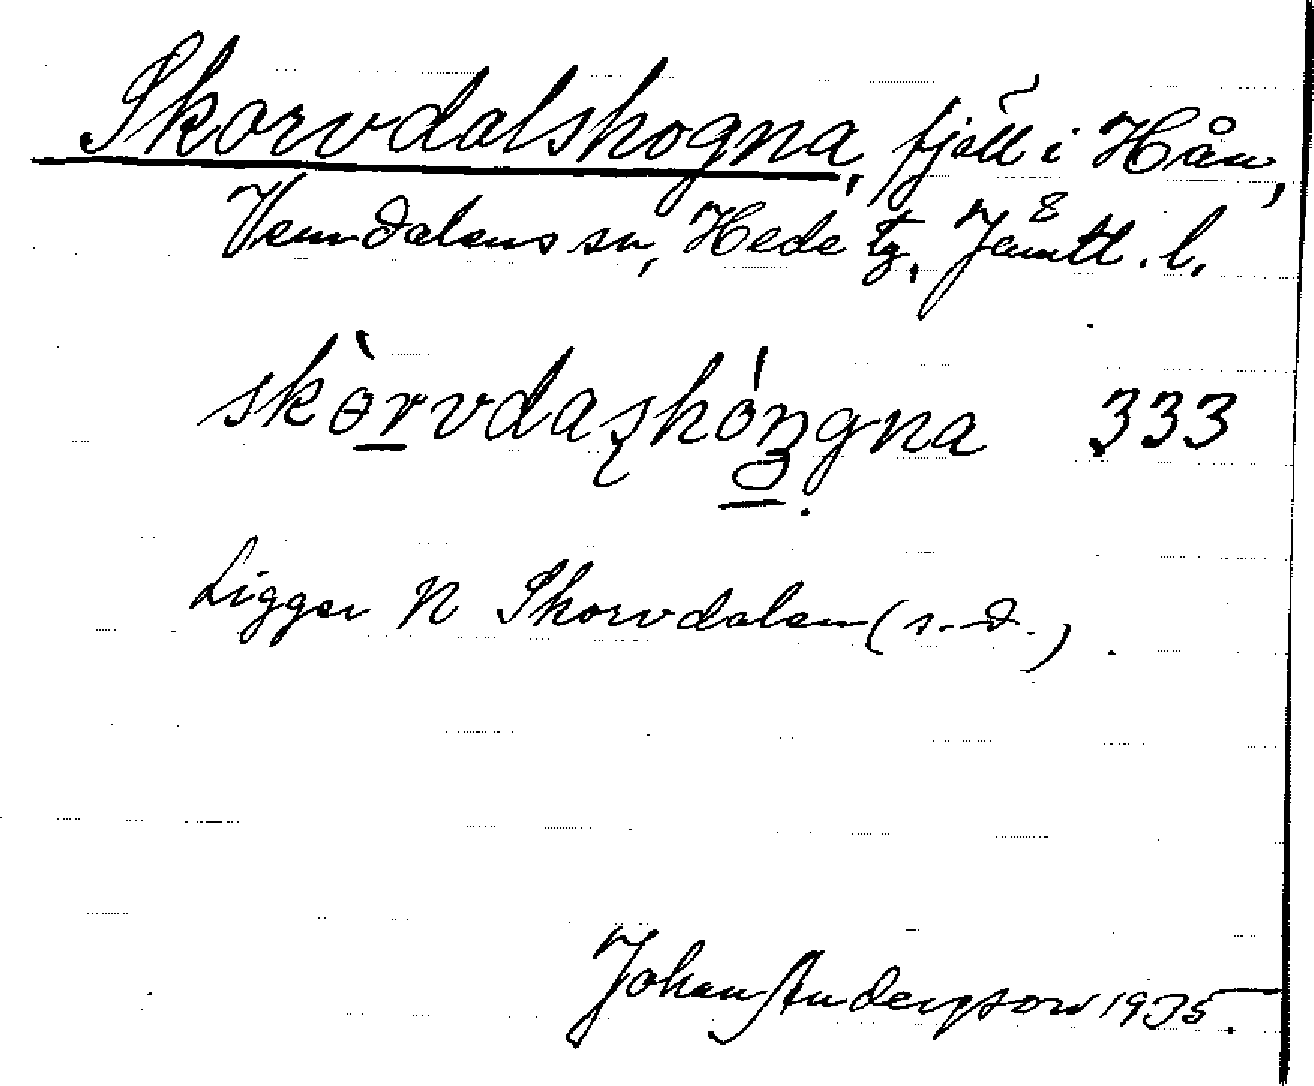 Skorvdalshogna, fjäll i Hån,
Vemdalens sn, Hede tg, Jämtl. l.
skòrvdaʂhóŋgna 333
Ligger N Skorvdalen (s. d.)
Johan Andersson 1935.